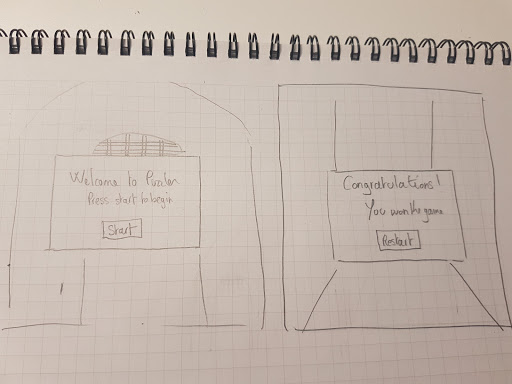 Welcome to Puzzler
Press start to begin
Start
Congratulations!
You won the game
Restart